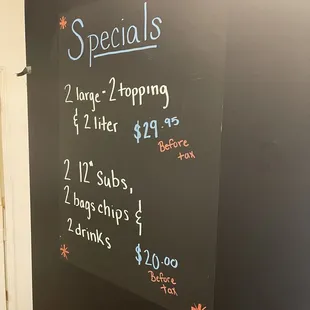 Specials
2 large - 2 topping
& 2 liter $29.95
Before
tax
2 12" Subs,
2 bags chips &
2 drinks
$20.00
Before
tax